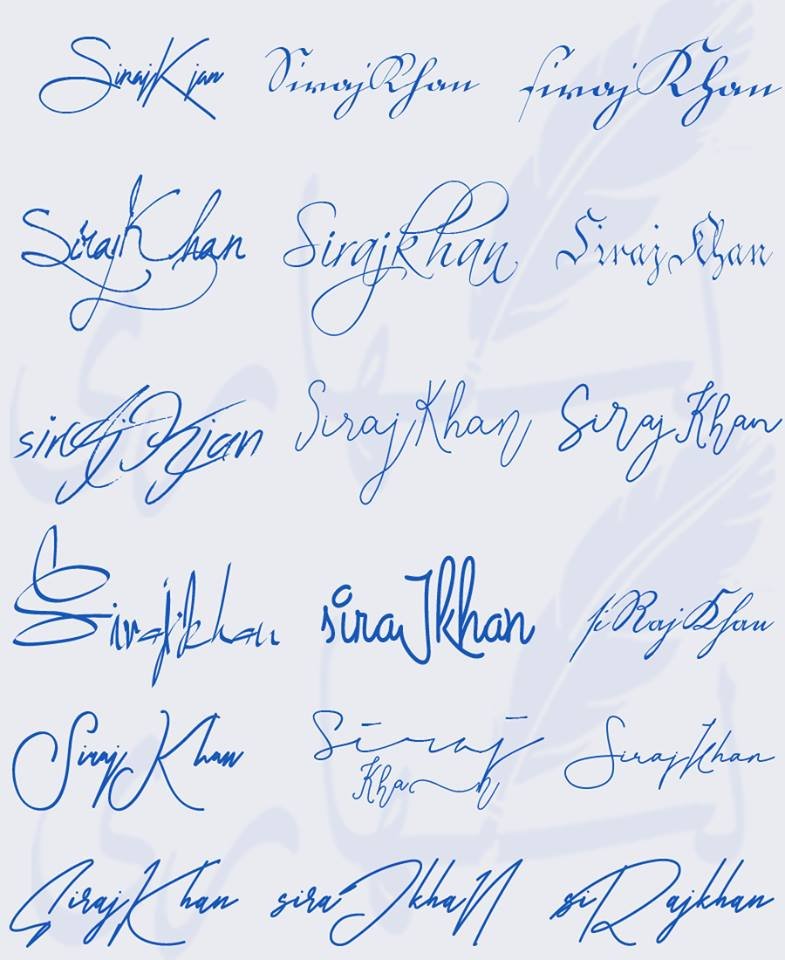 SirajKjan SirajKhan siraj Khan
SirajKhan Sirajkhan Siraj Khan
sirAj Kjan Siraj Khan Siraj Khan
Sirajkhan siraJkhan siRaj Khan
Siraj Khan Siraj
Khan SirajKhan
Siraj Khan siraJkhaN siRajkhan